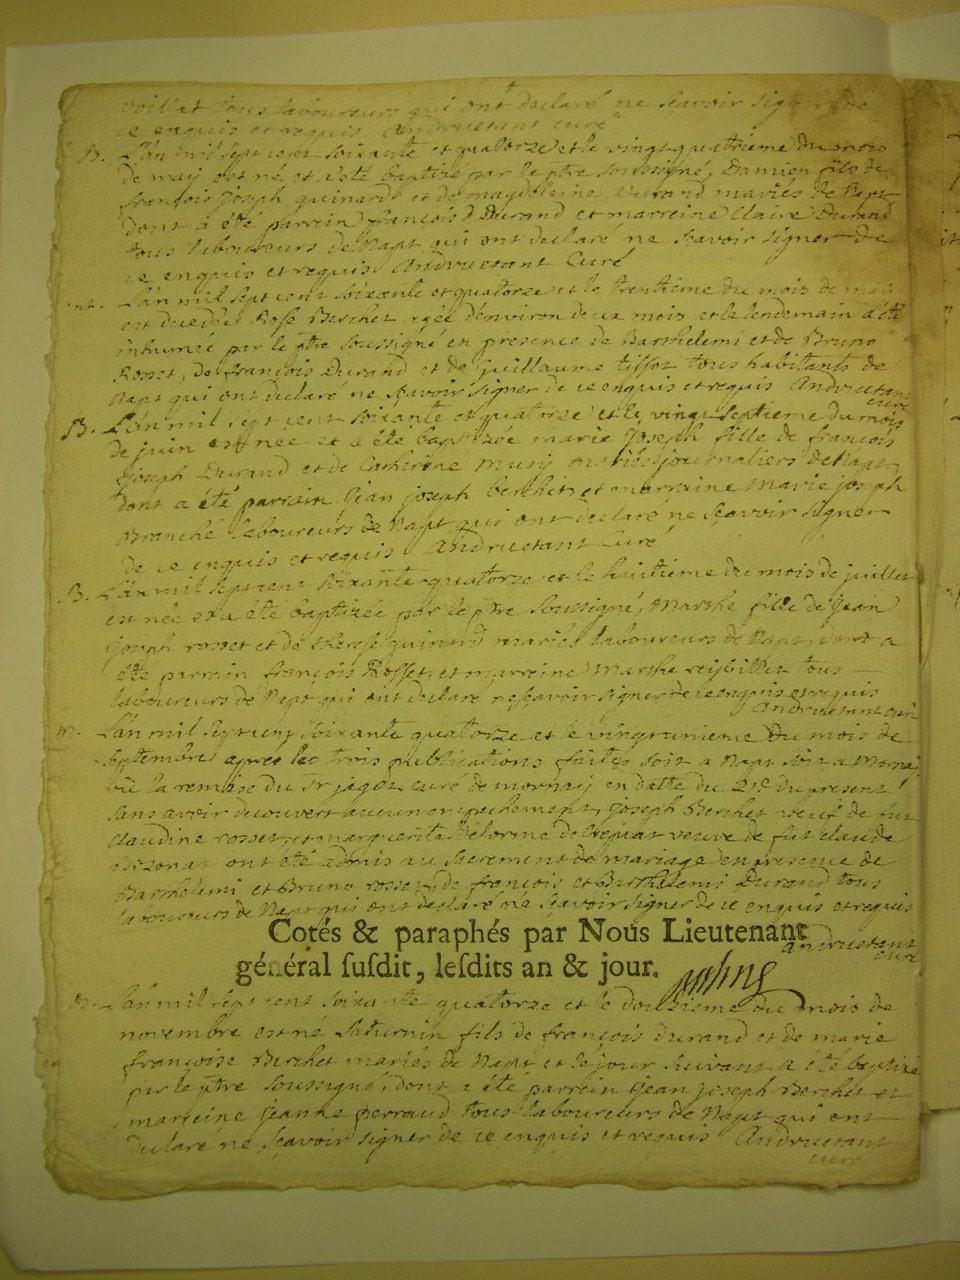 voillat tous laboureurs qui ont declaré ne scavoir signer de
ce enquis et requis Andruetant curé
B. L'an mil sept cent soixante et quatorze et le vingt quatrieme du mois
de may est né et a été baptizé par le ptre soussigné, Damien fils de
françois joseph guinard et de magdeleine Durand mariés de Napt
dont a été parrein françois Durand et marreine Claire Durand
tous laboureurs de Napt qui ont declaré ne scavoir signer de
ce enquis et requis Andruetant Curé
nt. L'an mil sept cent soixante et quatorze et le trentieme du mois de mai
est decedée Rose Berchet agée d'environ deux mois et le lendemain a été
inhumée par le ptre soussigné en presence de Barthelemi et de Bruno
Rosset, de françois Durand et de guillaume tissot tous habitants de
Napt qui ont declaré ne scavoir signer de ce enquis et requis Andruetant
curé
B. L'an mil sept cent soixante et quatorze et le vingt septieme du mois
de juin est née et a été baptizée marie joseph fille de françois
joseph Durand et de Catherine musy mariés journaliers de Napt
dont a été parrain jean joseph berchet et marraine Marie joseph
Branche laboureurs de Napt qui ont declaré ne scavoir signer
de ce enquis et requis Andruetant Curé
B. L'an mil sept cent soixante quatorze et le huitieme du mois de juillet
est née et a été baptizée par le ptre soussigné, Marthe fille de jean
joseph rosset et de therese guinard mariés laboureurs de Napt dont a
été parrain françois Rosset et marreine Marthe reybillet tous
laboureurs de Napt qui ont declaré ne scavoir signer de ce enquis et requis
Andruetant curé
m. L'an mil sept cent soixante quatorze et le vingt unieme du mois de
septembre apres les trois publications faites soit a Napt soit a Mornay
vû la remise du Sr jaget curé de mornay en datte du 21e du present
sans avoir decouvert aucun empechement, joseph Berchet veuf de fut
claudine rosset et marguerite Delorme de veuve de fut claude
ont été admis au sacrement de mariage en presence de
Barthelemi et Bruno rosset, de françois et Barthelemi Durand tous
laboureurs de Napt qui ont declaré ne scavoir signer de ce enquis et requis
Andruetant
curé
Cotés & paraphés par Nous Lieutenant
général susdit, lesdits an & jour.
B. L'an mil sept cent soixante quatorze et le douzieme du mois de
novembre est né saturnin fils de françois durand et de marie
françoise Berchet mariés de Napt et le jour suivant a été baptizé
par le ptre soussigné, dont a été parrein jean joseph Berchet et
marreine jeanne perraud tous laboureurs de Napt qui ont
declaré ne scavoir signer de ce enquis et requis Andruetant
curé